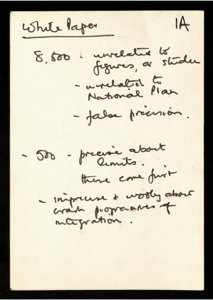 White Paper 1A
8,500 - unrelated to
figures, or studies
- unrelated to
National Plan
- false precision.
- 500 - precise about
limits.
these come first
- imprecise & woolly about
crash programmes &
integration.